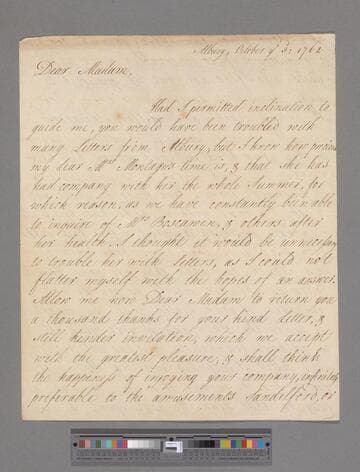 Albury, October ye 3: 1762
Dear Madam,
Had I permitted inclination to
guide me, you would have been troubled with
many Letters from Albury, but I know how precious
my dear Mrs Montagus time is, & that she has
had company with her the whole Summer, for
which reason, as we have constantly been able
to inquire of Mrs Boscawen, & others after
her health, I thought it would be unnecessary
to trouble her with Letters, as I could not
flatter myself with the hopes of an answer.
Allow me now Dear Madam to return you
a thousand thanks for your kind letter, &
still kinder invitation, which we accept
with the greatest pleasure, & shall think
the happiness of injoying your company, infinitely
preferable to the amusements Sandelford, or